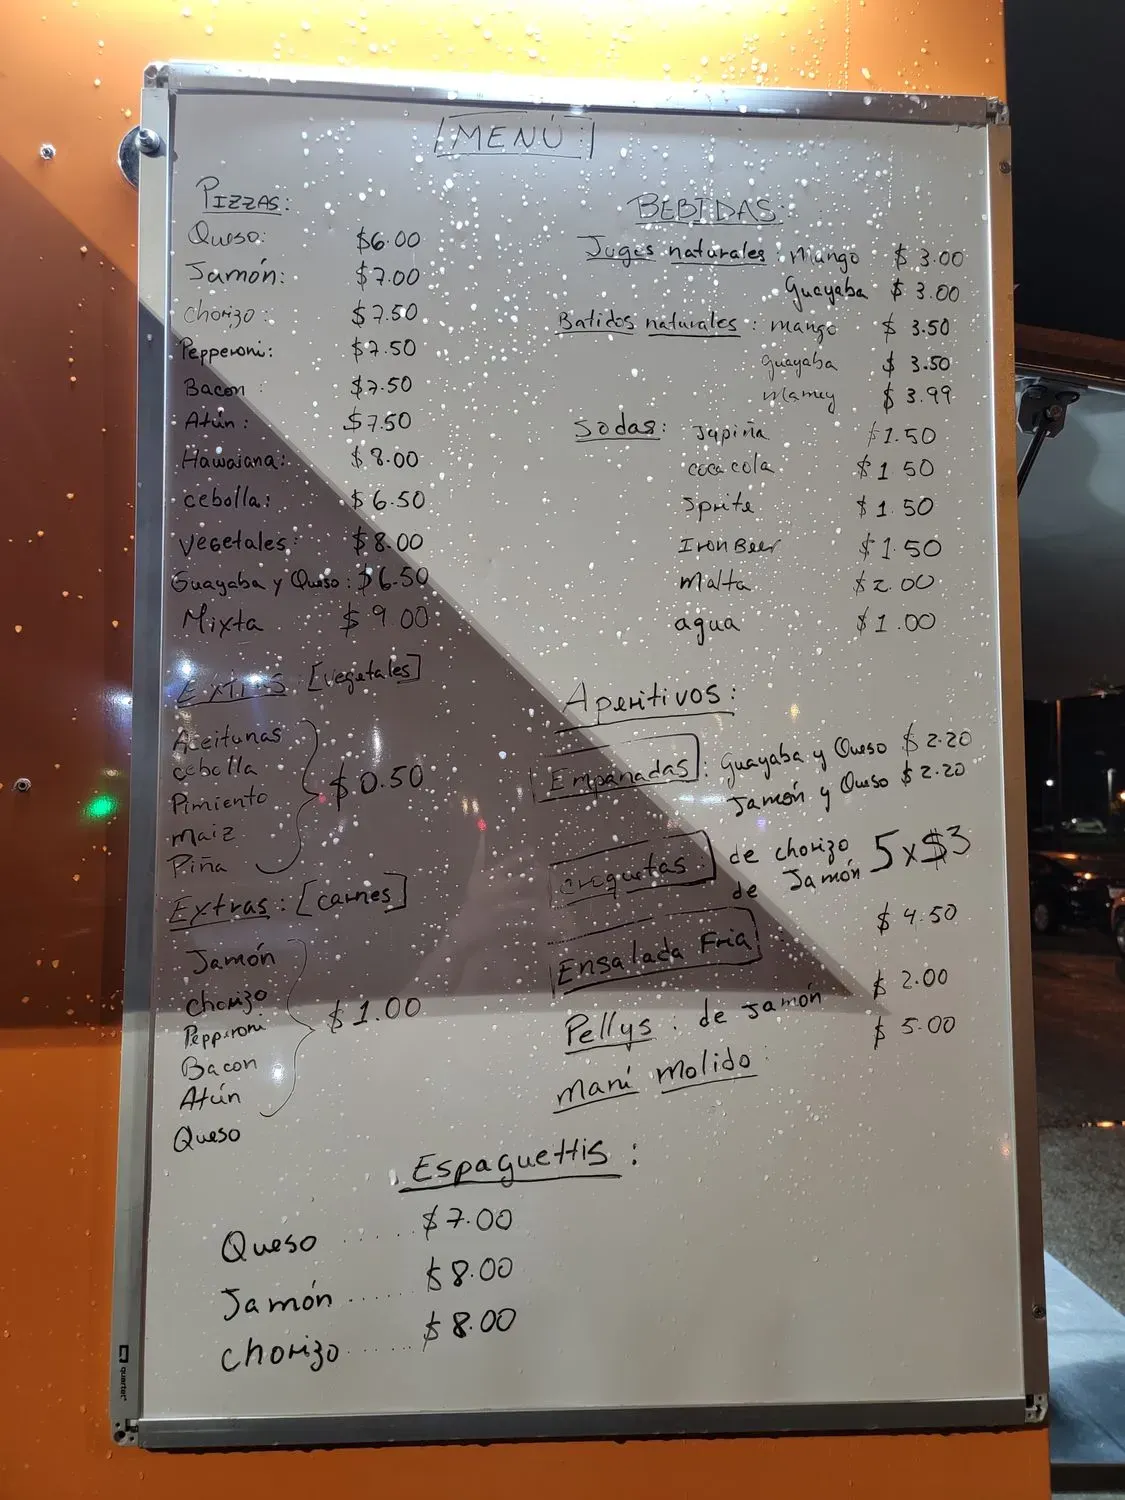 MENÚ:
PIZZAS:
Queso: $6.00
Jamón: $7.00
chorizo: $7.50
Pepperoni: $7.50
Bacon: $7.50
Atún: $7.50
Hawaiana: $8.00
cebolla: $6.50
Vegetales: $8.00
Guayaba y Queso: $6.50
Mixta $9.00
Extras [vegetales]
Aceitunas
cebolla
Pimiento
Maiz
Piña
$0.50
Extras: [carnes]
Jamón
chorizo
Pepperoni
Bacon
Atún
Queso
$1.00
BEBIDAS:
Jugos naturales: Mango $3.00
Guayaba $3.00
Batidos naturales: mango $3.50
guayaba $3.50
Mamey $3.99
Sodas: Jupiña $1.50
coca cola $1.50
Sprite $1.50
Iron Beer $1.50
Malta $2.00
agua $1.00
Aperitivos:
Empanadas: Guayaba y Queso $2.20
Jamón y Queso $2.20
croquetas: de chorizo
de Jamón
5x$3
Ensalada Fria: $4.50
Pellys: de Jamón $2.00
Maní Molido: $5.00
Espaguettis:
Queso ..... $7.00
Jamón ..... $8.00
chorizo ..... $8.00
quartet